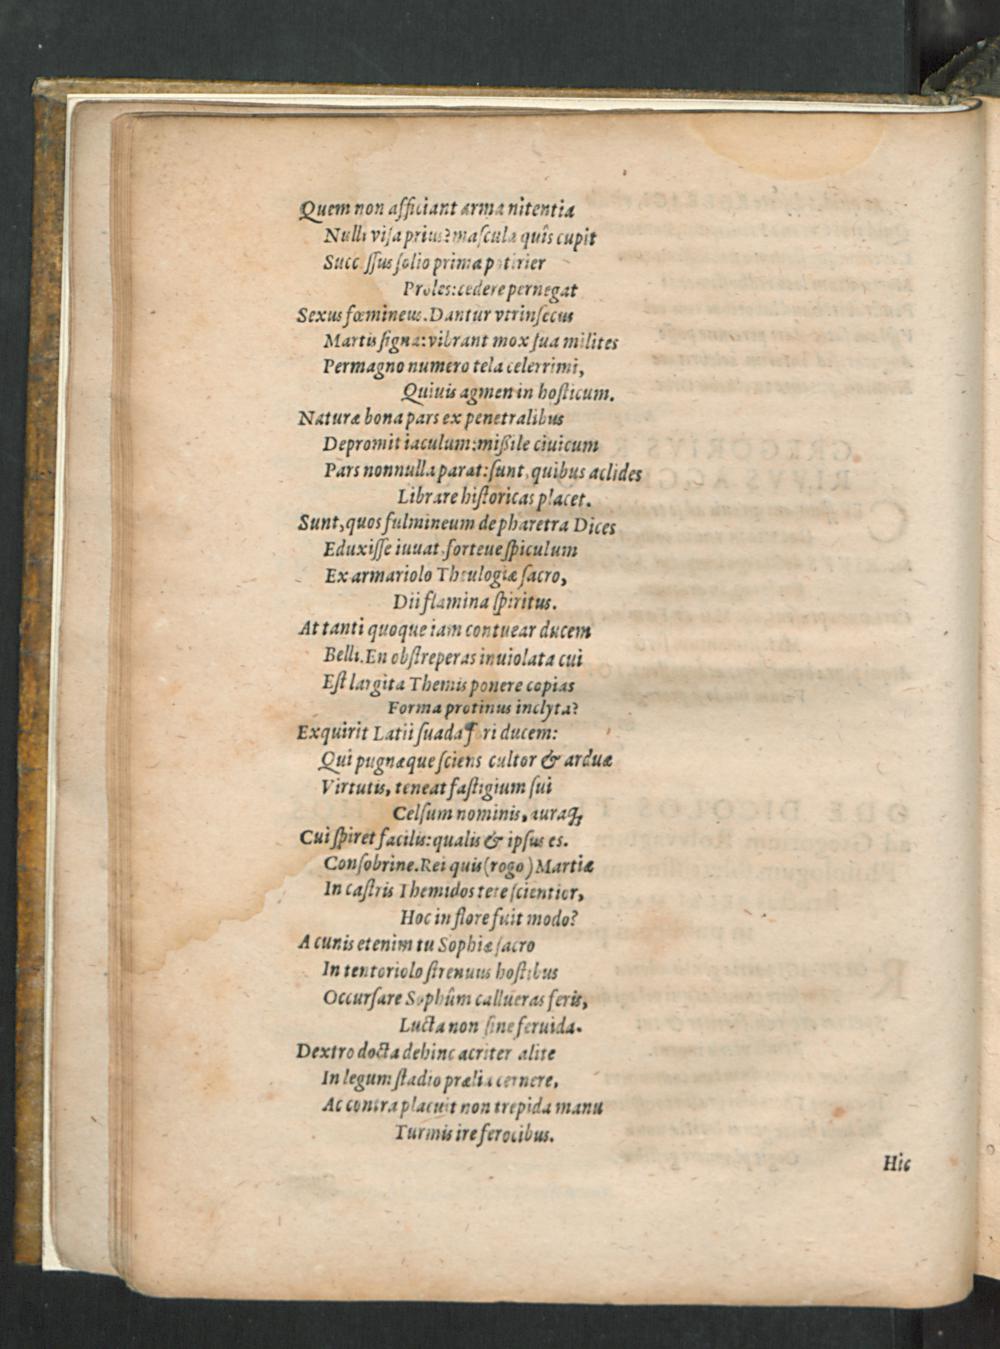 Quem non afficiant arma nitentia
Nulli visa prius? mascula quîs cupit
Succ ssus solio prima p tirier
Proles: cedere pernegat
Sexus fœmineus. Dantur vtrinsecus
Martis signa: vibrant mox sua milites
Permagno numero tela celerrimi,
Quiuis agmen in hosticum.
Naturæ bona pars ex penetralibus
Depromit iaculum: missile ciuicum
Pars nonnulla parat: sunt, quibus aclides
Librare historicas placet.
Sunt, quos fulmineum de pharetra Dices
Eduxisse iuuat, forteue spiculum
Ex armariolo Theulogiæ sacro,
Dii flamina spiritus.
At tanti quoque iam contuear ducem
Belli. En obstreperas inuiolata cui
Est largita Themis ponere copias
Forma protinus inclyta?
Exquirit Latii suada f ri ducem:
Qui pugnæque sciens cultor & arduæ
Virtutis, teneat fastigium sui
Celsum nominis, auraq;
Cui spiret facilis: qualis & ipsus es.
Consobrine. Rei quis (rogo) Martiæ
In castris Themidos te te scientior,
Hoc in flore fuit modo?
A cunis etenim tu Sophiæ sacro
In tentoriolo strenuus hostibus
Occursare Sophûm callueras feris,
Lucta non sine feruida.
Dextro docta dehinc acriter alite
In legum stadio prælia cernere,
Ac contra placuit non trepida manu
Turmis ire ferocibus.
Hic